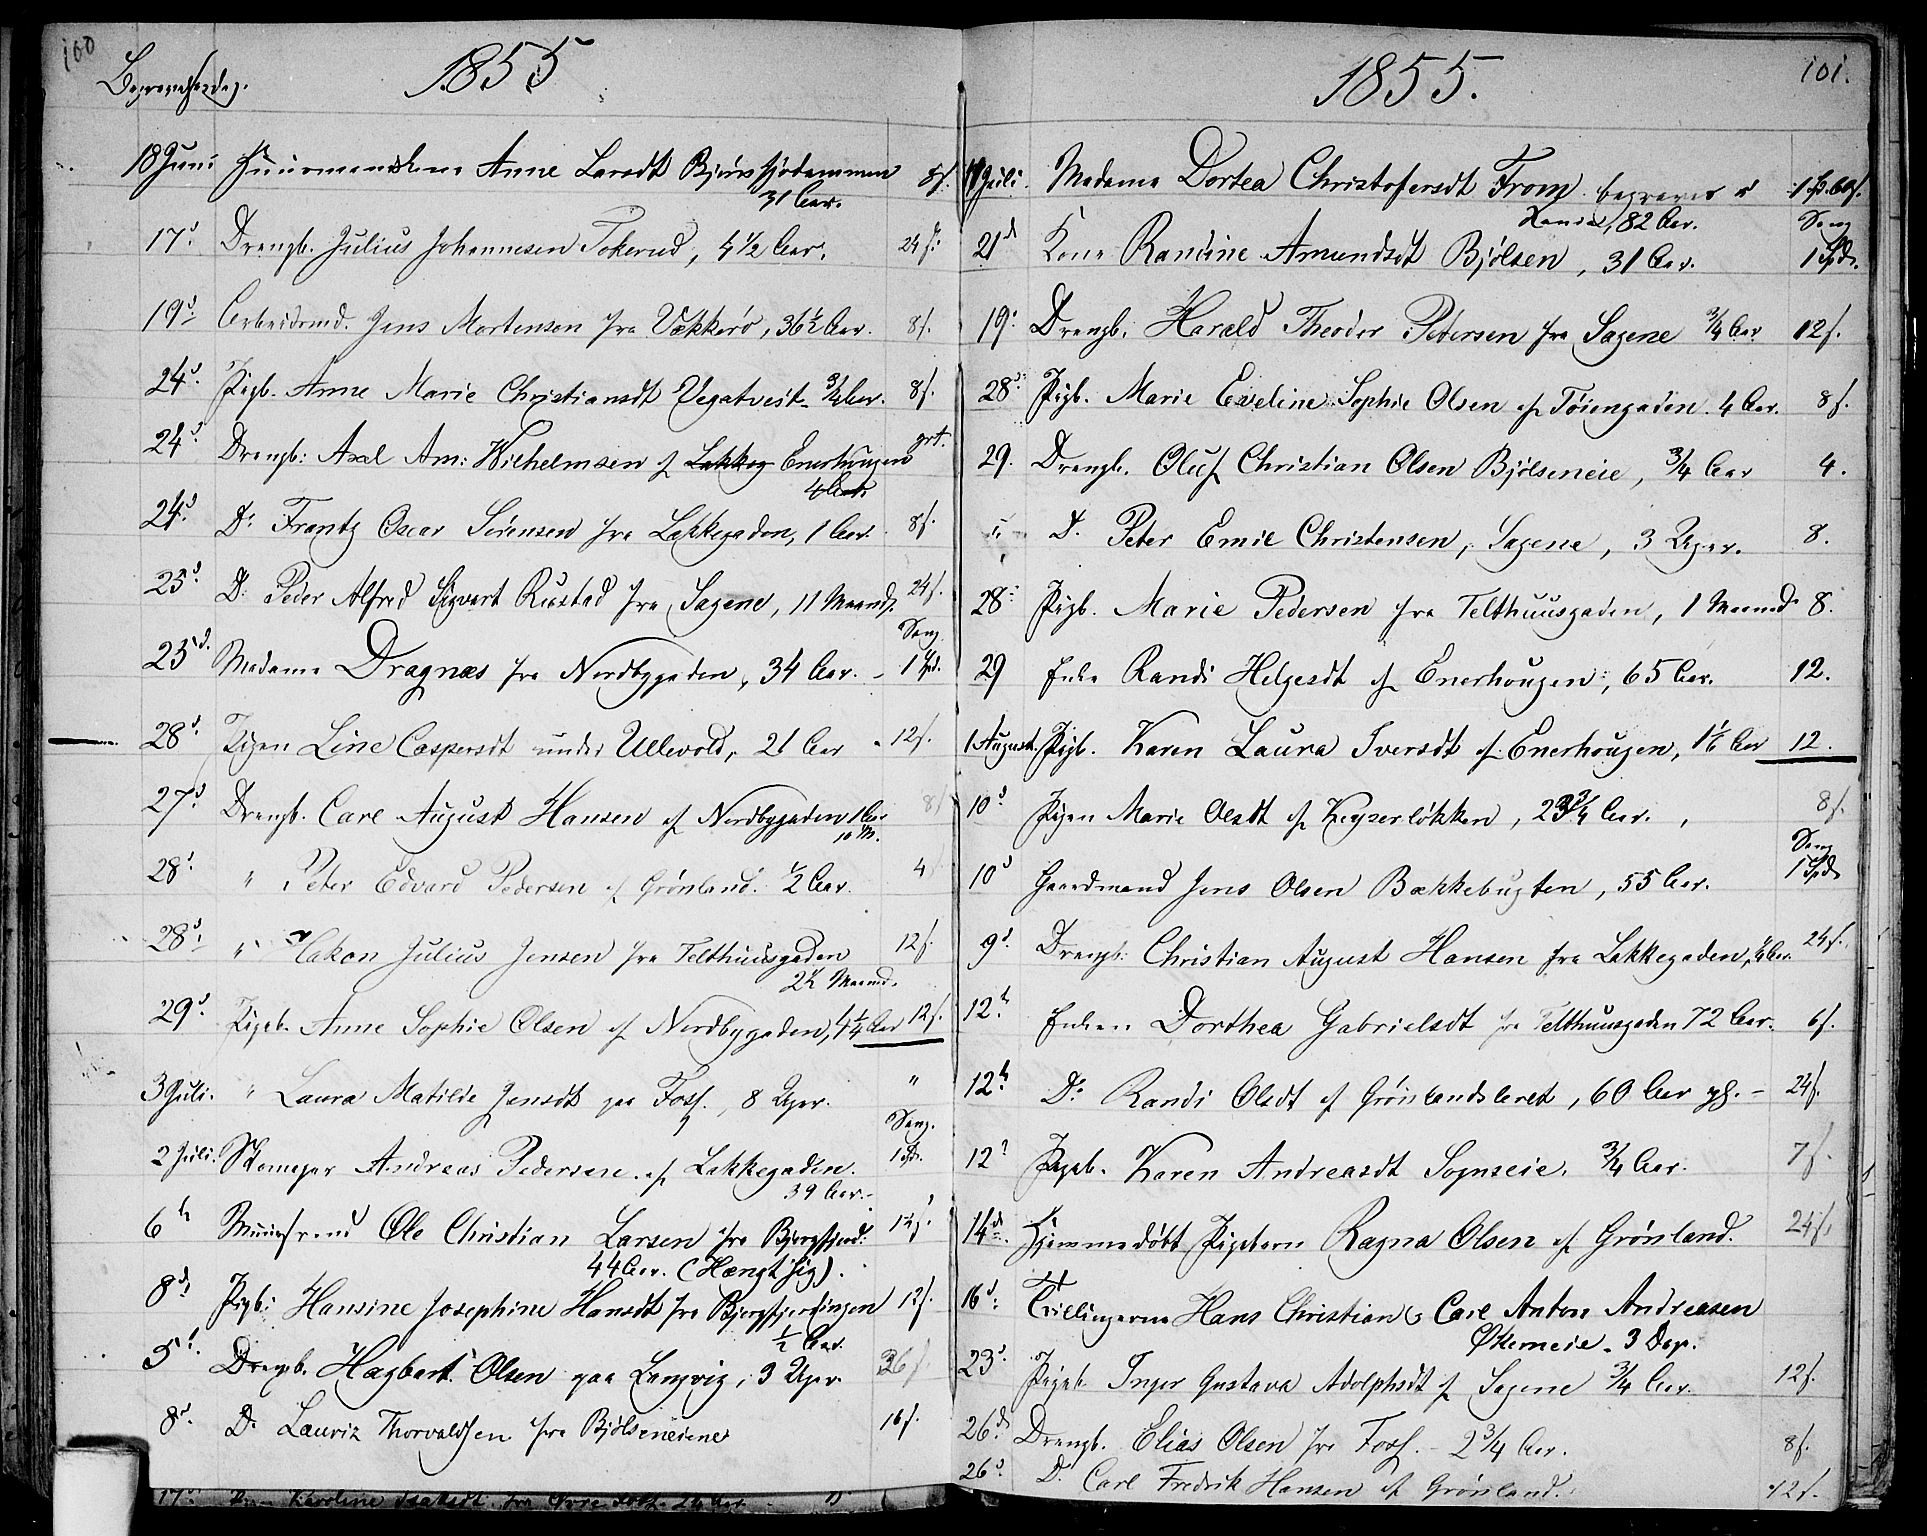 100
1855
Begravelsesdag.
18 Juni Huusmandskone Anne Larsdt Bjørnsjødammen 8f.
31 Aar.
17d. Drengb. Julius Johannesen Tokerud, 4 1/2 Aar. 24f.
19d. Arbeidsmd. Jens Mortensen fra Vækkerø, 36 1/2 Aar. 8f.
24d. Pigb. Anne Marie Christiansdt 3/4 Aar. 8f.
24d. Drengb: Axel Am: Wilhelmsen af Enerhougen grt.
4 Aar.
24d. D: Frantz Oscar Sørensen fra Lakkegaden, 1 Aar. 8f.
25d. D: Peder Alfred Sigvart Rustad fra Sagene, 11 Maand. 24f.
Sang
25d. Madame Dragnæs fra Nordbygaden, 34 Aar. - 1 Spd.
28d. Pigen Line Caspersdt under Ullevold, 21 Aar 12f.
27d. Drengb. Carl August Hansen af Nordbygaden 1 Aar 8f
10 M.
28d. " Peter Edvard Pedersen af Grønland. 1/2 Aar. 4
28d. " Hakon Julius Jensen fra Telthuusgaden 12f.
2 1/2 Maand.
29d. Pigeb. Anne Sophie Olsen af Nordbygaden, 4 1/4 Aar 12f.
3 Juli. " Laura Matilde Jensdt paa Foss., 8 Uger. "
Sang.
2 Juli. Skomager Andreas Pedersen af Lakkegaden. 1 Spd.
39 Aar.-
6te Muursvend Ole Christian Larsen fra Bjergfjerd: 12f.
44 Aar. (Hængt sig).
8de Pigb: Hansine Josephine Hansdt fra Bjergfjerdingen 12f.
1/2 Aar.
5t. Drengb. Hagbart Olsen paa Langvig, 3 Uger. 36f.
8d. D: Lauriz Thorvaldsen fra Bjølseneiene 16f.
17d. Karoline Isaksdt. fra Øvre Foss.
101.
1855.
Juli. Madame Dortea Christofersdt From. begraves i
82 Aar. Sang
21d Kone Randine Amundsdt Bjølsen, 31 Aar. 1 Spd.
19d Drengb. Harald Theodor Pedersen fra Sagene 3/4 Aar 12f.
28d. Pigb. Marie Eveline Sophie Olsen af Tøiengaden. 4 Aar. 8f.
29. Drengb. Oluf Christian Olsen Bjølseneie, 3/4 Aar 4.
" D. Peter Emil Christensen, Sagene, 3 Uger. 8.
28d Pigb. Marie Pedersen fra Telthuusgaden, 1 Maaned 8.
29 Enke Randi Helgesdt af Enerhougen, 65 Aar. 12.
1 August. Pigb. Karen Laura Iversdt af Enerhougen, 1 1/6 Aar 12.
10d Pigen Marie Olsdt af Keyserløkken, 23 3/4 Aar. 8f.
Sang
10d Gaardmand Jens Olsen Bækkebugten, 55 Aar. 1 Spd.
9d. Drengb: Christian August Hansen fra Lakkegaden, Aar. 24f.
12te. Enken Dorthea Gabrielsdt fra Telthuusgaden 72 Aar. 6f.
12te. D: Randi Olsdt af Grønlandsleret, 60 Aar gl. - 24f.
12te Pigeb. Karen Andreasdt Sognseie. 3/4 Aar. 7f.
14de. Hjemmedøbt Pigebarn Ragna Olsen af Grønland. 24f.
16d. Tvillingerne Hans Christian & Carl Anton Andreasen
Økerneie. 3 Dage.
23d. Pigeb. Inger Gustava Adolphsdt af Sagene 3/4 Aar. 12f.
26de Drengb. Elias Olsen fra Foss. - 2 3/4 Aar. 8f.
26d. D. Carl Fredrik Hansen af Grønland. 12f.